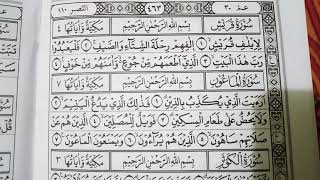 عمّ ٣٠ ٤٦٣ النصر ١١٠
سُورَةُ قُرَيْشٍ بِسْمِ اللهِ الرَّحْمٰنِ الرَّحِيْمِ مَكِّيَّةٌ وَآيَاتُهَا ٤
لِإِيلٰفِ قُرَيْشٍ ١ إِلٰفِهِمْ رِحْلَةَ الشِّتَآءِ وَالصَّيْفِ ٢ فَلْيَعْبُدُوا
رَبَّ هٰذَا الْبَيْتِ ٣ الَّذِيْ أَطْعَمَهُمْ مِنْ جُوْعٍ وَآمَنَهُمْ مِنْ خَوْفٍ ٤
سُورَةُ الْمَاعُوْنِ بِسْمِ اللهِ الرَّحْمٰنِ الرَّحِيْمِ مَكِّيَّةٌ وَآيَاتُهَا ٧
أَرَءَيْتَ الَّذِيْ يُكَذِّبُ بِالدِّيْنِ ١ فَذٰلِكَ الَّذِيْ يَدُعُّ الْيَتِيْمَ ٢
وَلَا يَحُضُّ عَلٰى طَعَامِ الْمِسْكِيْنِ ٣ فَوَيْلٌ لِلْمُصَلِّيْنَ ٤ الَّذِيْنَ هُمْ عَنْ
صَلَاتِهِمْ سَاهُوْنَ ٥ الَّذِيْنَ هُمْ يُرَآءُوْنَ ٦ وَيَمْنَعُوْنَ الْمَاعُوْنَ ٧
سُورَةُ الْكَوْثَرِ بِسْمِ اللهِ الرَّحْمٰنِ الرَّحِيْمِ مَكِّيَّةٌ وَآيَاتُهَا ٣